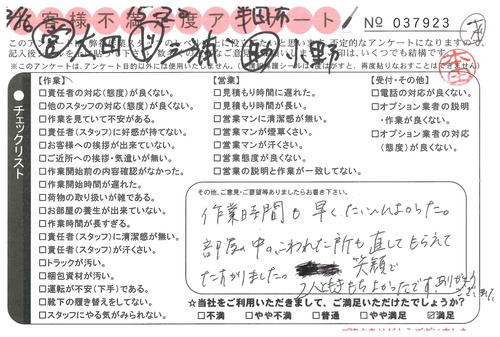 お客様不満足度アンケート
No 037923
【作業】
□責任者の対応(態度)が良くない。
□他のスタッフの対応(態度)が良くない。
□作業を見ていて不安がある。
□責任者(スタッフ)に好感が持てない。
□お客様への挨拶が出来ていない。
□ご近所への挨拶・気遣いが無い。
□作業開始前の内容確認がなかった。
□作業開始時間が遅れた。
□荷物の取り扱いが雑である。
□お部屋の養生が出来ていない。
□作業時間が長すぎる。
□責任者(スタッフ)に清潔感が無い。
□責任者(スタッフ)が汗くさい。
□トラックが汚い。
□梱包資材が汚い。
□運転が不安(下手)である。
□靴下の履き替えをしていない。
□スタッフにやる気がみられない。
【営業】
□見積もり時間に遅れた。
□見積もり時間が長い。
□営業マンに清潔感が無い。
□営業マンが煙草くさい。
□営業マンが汗くさい。
□営業態度が良くない。
□営業の説明と作業が一致してない。
【受付・その他】
□電話の対応が良くない。
□オプション業者の説明
・作業が良くない。
□オプション業者の対応
(態度)が良くない。
チェックリスト
その他、ご意見・ご要望等ありましたらお書き下さい。
作業時間も早くたいへんよかった。
部屋の中のこわれた所も直してもらえて
たすかりました。 笑顔で
2人ときもちよかったです。ありがとう
ございました。
☆当社をご利用いただきまして、ご満足いただけたでしょうか?
□不満 □やや不満 □普通 □やや満足 ☑満足